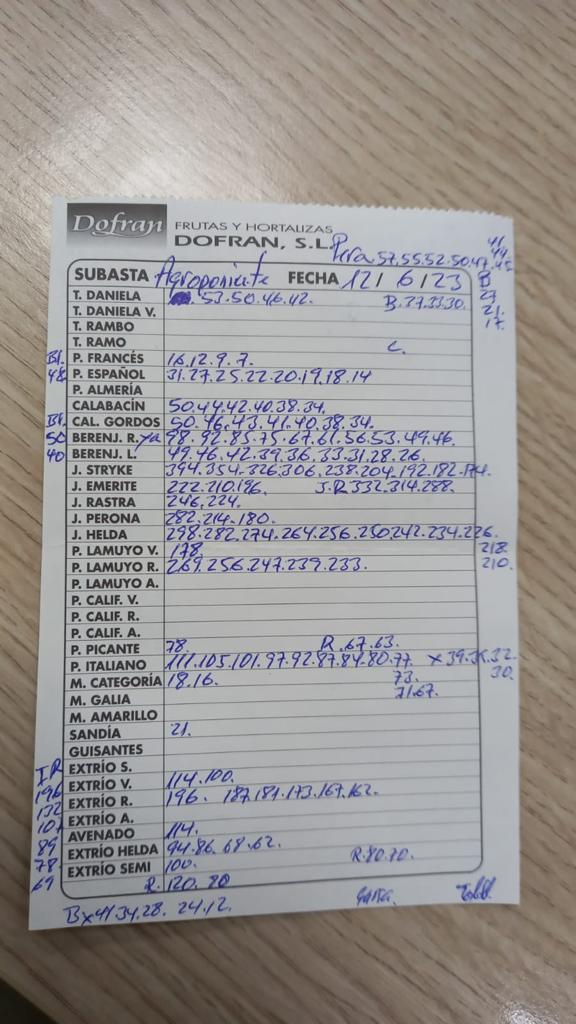 Dofran FRUTAS Y HORTALIZAS
DOFRAN, S.L. Pera 57.55.52.50.47.45. 44. 41
SUBASTA Agroponiente FECHA 12/6/23
T. DANIELA 53.50.46.42. B.37.33.30. 27 21. 17.
T. DANIELA V.
T. RAMBO
T. RAMO C.
P. FRANCÉS 16.12.9.7.
P. ESPAÑOL 31.27.25.22.20.19.18.14
P. ALMERÍA
CALABACÍN 50.44.42.40.38.34.
CAL. GORDOS 50.46.43.41.40.38.34.
50 BERENJ. R. 98.92.85.75.67.61.56.53.49.46.
40 BERENJ. L. 49.46.42.39.36.33.31.28.26.
J. STRYKE 394.354.326.306.238.204.192.182.174.
J. EMERITE 222.210.196. J.R 332.314.288.
J. RASTRA 246.224.
J. PERONA 282.214.180.
J. HELDA 298.282.274.264.256.250.242.234.226.
P. LAMUYO V. 178. 218.
P. LAMUYO R. 269.256.247.239.233. 210.
P. LAMUYO A.
P. CALIF. V.
P. CALIF. R.
P. CALIF. A.
P. PICANTE 78. R.67.63.
P. ITALIANO 111.105.101.97.92.87.84.80.77. x 39. 32. 30.
M. CATEGORÍA 18.16. 73.
M. GALIA 71.67.
M. AMARILLO
SANDÍA 21.
GUISANTES
EXTRÍO S.
EXTRÍO V. 114.100.
196 EXTRÍO R. 196. 187.181.173.167.162.
132 EXTRÍO A.
107 AVENADO 114.
89 EXTRÍO HELDA 94.86.68.62.
78 EXTRÍO SEMI 100. R.80.70.
69 R. 120. 80
Bx41.34.28. 24.12.